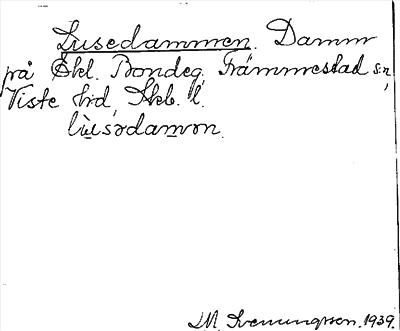 Lusedammen. Damm
på Skl. Bondeg, Främmestad s:n,
Viste hrd, Skb. l.
lùsədamən.
M. Svenungsson. 1939.